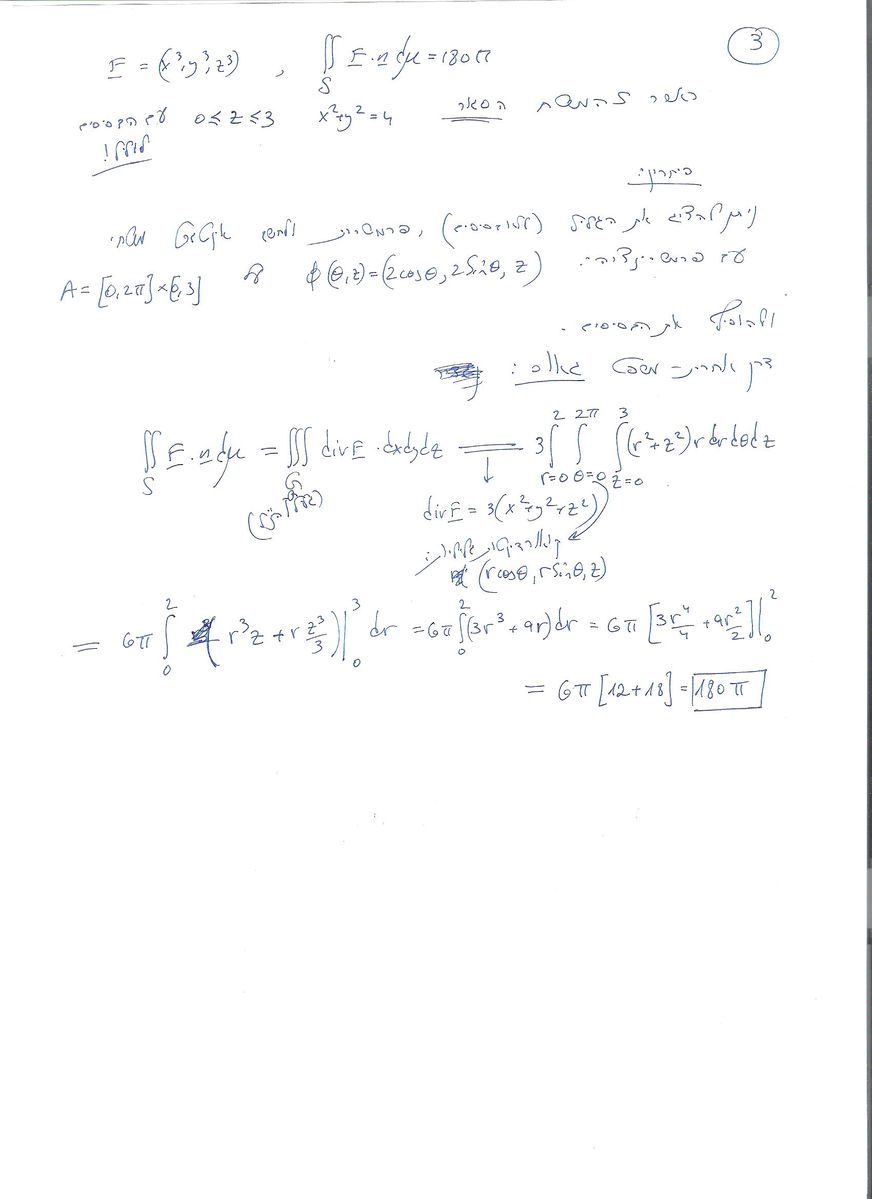 3
F = (x³, y³, z³) , ∬_S F·n dμ = 180π
כאשר S המשטח הסגור x²+y²=4 0≤z≤3 עם הבסיסים
כולל!
פיתרון:
ניתן להציג את הגליל (ללא בסיסים), פרמטרית ולחשב אינטגרל משטחי
עם פרמטריזציה: φ(θ,z)=(2cosθ, 2sinθ, z) על A=[0,2π]×[0,3]
ולהוסיף את הבסיסים.
דרך אחרת - משפט גאוס:
∬_S F·n dμ = ∭_G divF·dxdydz = 3∫_{r=0}^{2} ∫_{θ=0}^{2π} ∫_{z=0}^{3} (r²+z²) r dr dθ dz
divF = 3(x²+y²+z²)
קואורדינטות גליליות:
(rcosθ, rsinθ, z)
= 6π ∫_0^2 (r³z + r z³/3)|_0^3 dr = 6π ∫_0^2 (3r³+9r)dr = 6π [3r⁴/4 + 9r²/2]|_0^2
= 6π [12+18] = 180π